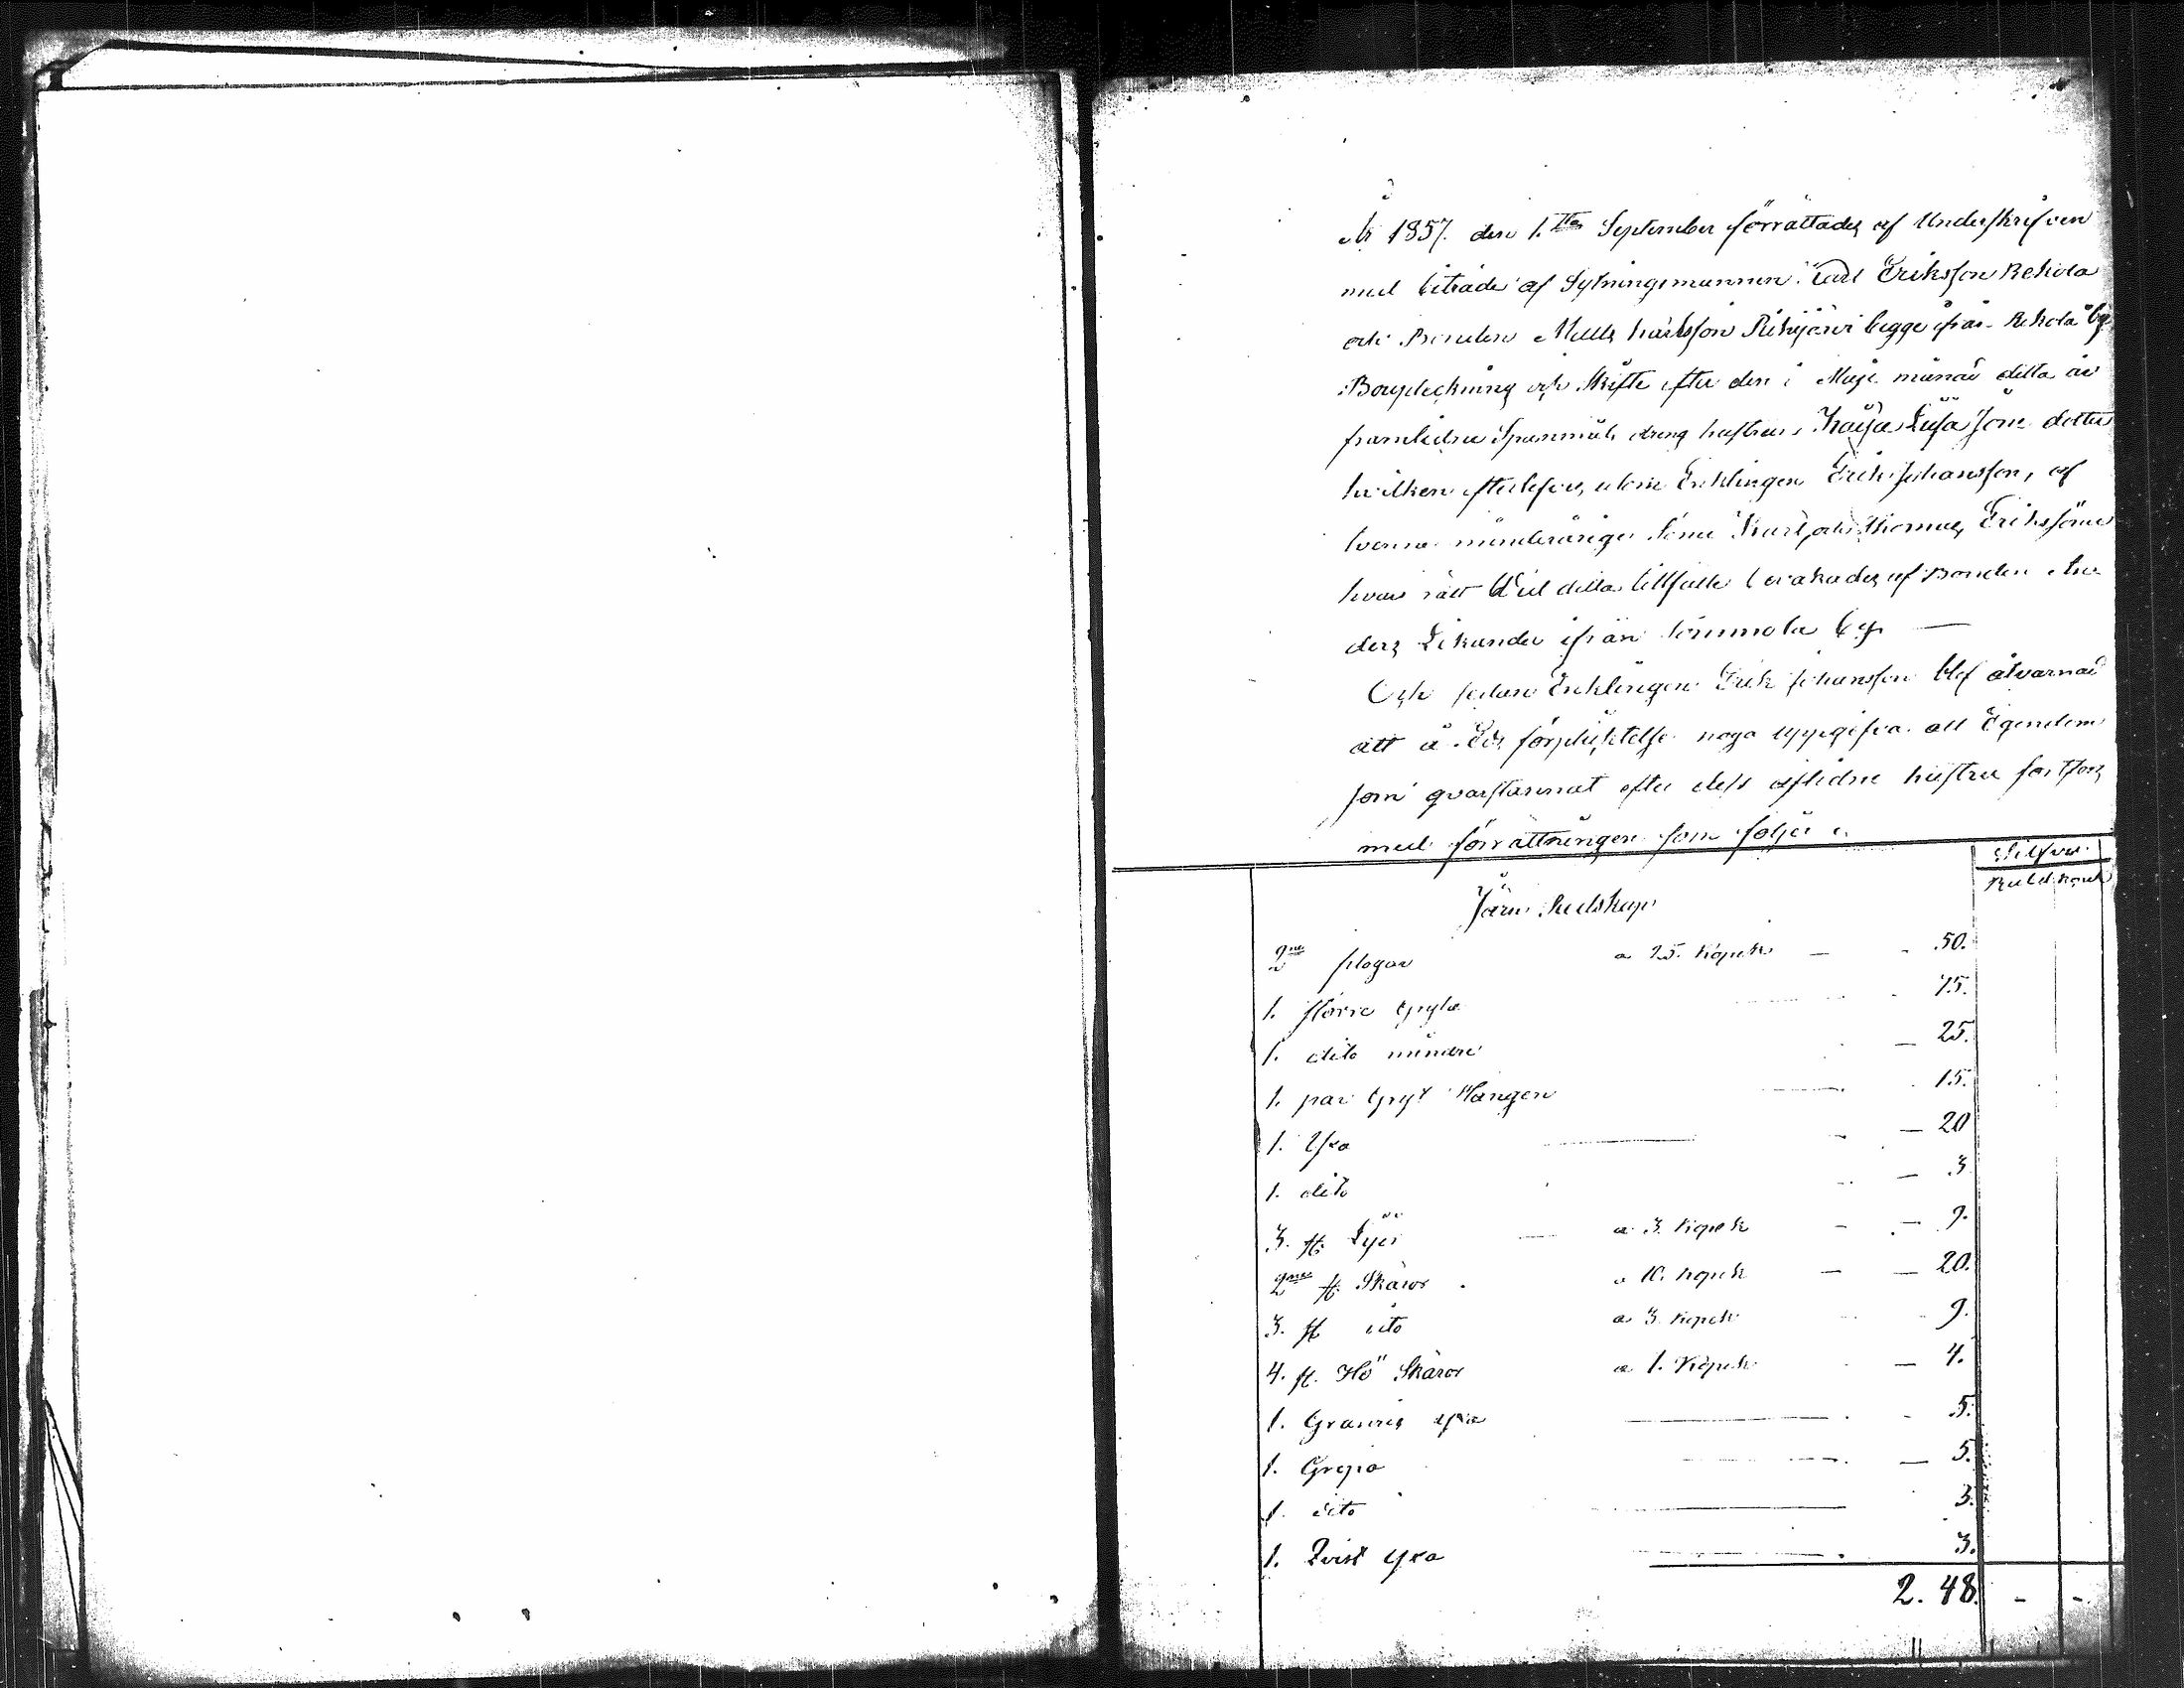 År 1857. den 1.sta September förrättades af Underskrifven
med biträde af Sytningsmannen Carl Eriksson Rekola
och Bonden Matts Karlsson Pitkäjärvi begge ifrån Rekola by
Bouppteckning och Skifte efter den i Maji månad detta år
framlidna Spanmåls dreng hustrun Kajsa Lisa dotter
hvilken efterlefves, utom Enklingen Erik Johansson, af
tvenne minderåriga Söner Karl och Thomas Eriks söner
hvars rätt Vid detta tillfälle bevakades af Bonden An-
ders Sikander ifrån Sommola by —
Och sedan Enklingen Erik Johansson blef åtvarnad
att å Eds förpliktelse noga uppgifva all Egendom
som qvarstannat efter dess aflidne hustru fortfors
med förrättningen som följer
Silfver
Rubel Kopek
Järn Redskap
2ne plogar a 25. Kopek — - 50.
1. större gryta - 75.
1. dito mindre — 25.
1. par Gryt Stänger 15.
1. Yxa — 20
1. dito — 3
3. st. Lijar a 3. Kopek - — 9.
2ne st. Skäror a 10. kopek — — 20.
3. st dito a 3 Kopek 9.
4. st. Hö Skäror a 1. Kopek — 4.
1. Granris yxa - 5.
1. Grepa — 5.
1. dito 3.
1. Qvist yxa 3.
2. 48. - -